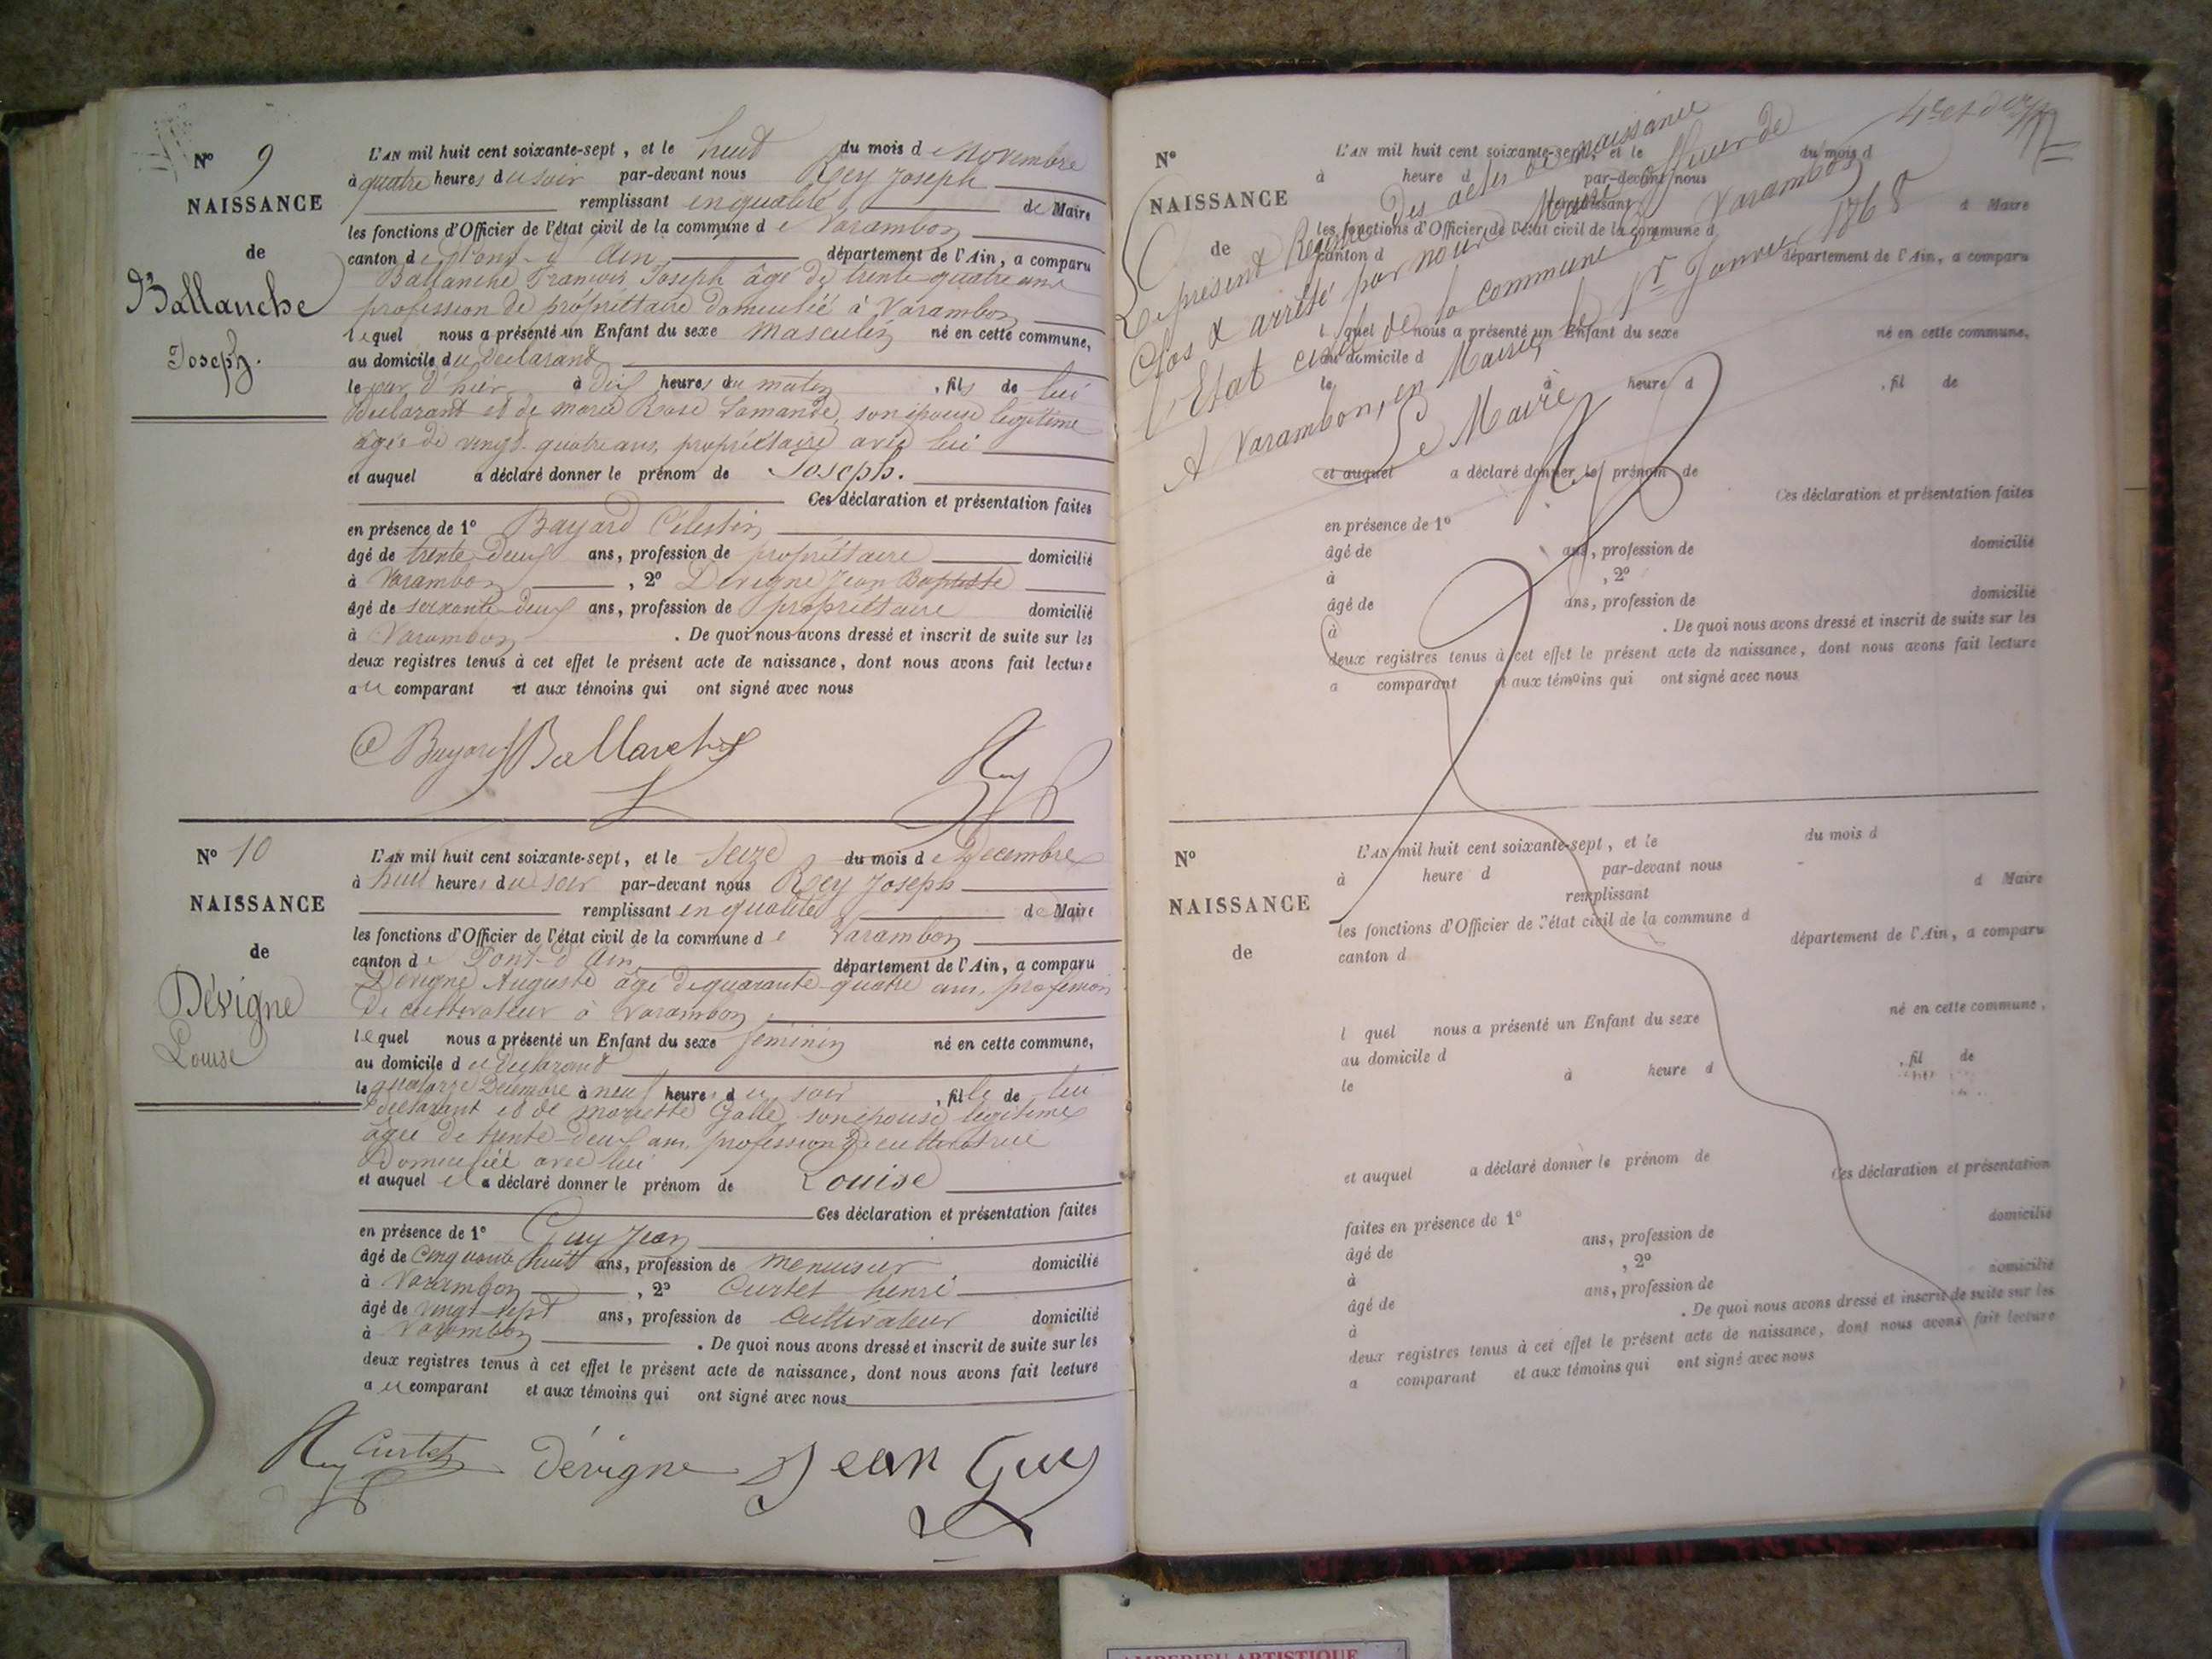 N° 9
NAISSANCE
de
Ballanche
Joseph.
L'AN mil huit cent soixante-sept, et le huit du mois de Novembre
à quatre heures du soir par-devant nous Rey Joseph
remplissant en qualité de Maire
les fonctions d'Officier de l'état civil de la commune de Varambon
canton de Pont-d'Ain département de l'Ain, a comparu
Ballanche François Joseph âgé de trente quatre ans
profession de propriétaire domicilié à Varambon
lequel nous a présenté un Enfant du sexe masculin né en cette commune,
au domicile du déclarant
le jour d'hier à dix heures du matin, fils de lui
déclarant et de marie Rose Lamande, son épouse légitime
âgée de vingt-quatre ans, propriétaire avec lui
et auquel a déclaré donner le prénom de Joseph.
Ces déclaration et présentation faites
en présence de 1° Bayard Célestin
âgé de trente-deux ans, profession de propriétaire domicilié
à Varambon, 2° Dévigne Jean Baptiste
âgé de soixante-deux ans, profession de propriétaire domicilié
à Varambon. De quoi nous avons dressé et inscrit de suite sur les
deux registres tenus à cet effet le présent acte de naissance, dont nous avons fait lecture
au comparant et aux témoins qui ont signé avec nous
C Bayard Ballanche Rey
N° 10
NAISSANCE
de
Dévigne
Louise
L'AN mil huit cent soixante-sept, et le Seize du mois de Décembre
à huit heures du soir par-devant nous Rey Joseph
remplissant en qualité de Maire
les fonctions d'Officier de l'état civil de la commune de Varambon
canton de Pont-d'Ain département de l'Ain, a comparu
Dévigne Auguste âgé de quarante-quatre ans, profession
de cultivateur à Varambon
lequel nous a présenté un Enfant du sexe féminin né en cette commune,
au domicile du déclarant
le quatorze Décembre à neuf heures du soir, fille de lui
déclarant et de mariette Galle, son épouse légitime
âgée de trente-deux ans, profession de cultivatrice
Domiciliée avec lui
et auquel il a déclaré donner le prénom de Louise
Ces déclaration et présentation faites
en présence de 1° Guy Jean
âgé de Cinquante huit ans, profession de menuisier domicilié
à Varambon, 2° Curtet henri
âgé de vingt-sept ans, profession de Cultivateur domicilié
à Varambon. De quoi nous avons dressé et inscrit de suite sur les
deux registres tenus à cet effet le présent acte de naissance, dont nous avons fait lecture
au comparant et aux témoins qui ont signé avec nous
Rey Curtet Dévigne Jean Guy
4e et der
Le présent Registre des actes de naissance
Clos & arrêté par nous Maire officier de
l'Etat civil de la commune de Varambon
A Varambon, en Mairie, le 1er Janvier 1868
Le Maire
Rey
N°
NAISSANCE
de
L'AN mil huit cent soixante-sept, et le du mois d
à heure d par-devant nous
remplissant d Maire
les fonctions d'Officier de l'état civil de la commune d
canton d département de l'Ain, a comparu
l quel nous a présenté un Enfant du sexe né en cette commune,
au domicile d
le à heure d , fil de
et auquel a déclaré donner le prénom de
Ces déclaration et présentation faites
en présence de 1°
âgé de ans, profession de domicilié
à , 2°
âgé de ans, profession de domicilié
à . De quoi nous avons dressé et inscrit de suite sur les
deux registres tenus à cet effet le présent acte de naissance, dont nous avons fait lecture
a comparant et aux témoins qui ont signé avec nous
N°
NAISSANCE
de
L'AN mil huit cent soixante-sept, et le du mois d
à heure d par-devant nous
remplissant d Maire
les fonctions d'Officier de l'état civil de la commune d
canton d département de l'Ain, a comparu
l quel nous a présenté un Enfant du sexe né en cette commune,
au domicile d
le à heure d , fil de
et auquel a déclaré donner le prénom de
Ces déclaration et présentation
faites en présence de 1° domicilié
âgé de ans, profession de
à , 2° domicilié
âgé de ans, profession de
à . De quoi nous avons dressé et inscrit de suite sur les
deux registres tenus à cet effet le présent acte de naissance, dont nous avons fait lecture
a comparant et aux témoins qui ont signé avec nous
AMBERIEU ARTISTIQUE